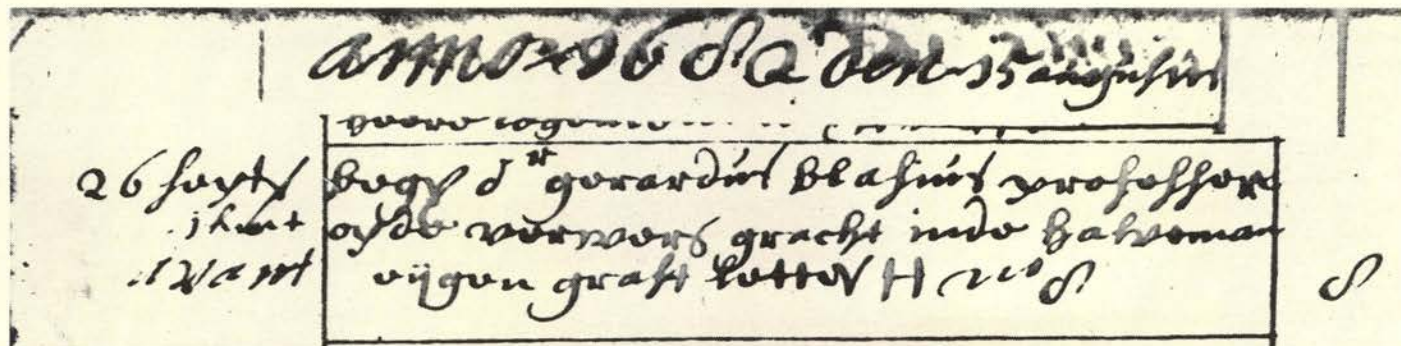 anno 1682 den 15 augustus
26 septr begr dr gerardus blasius professor
opde verwers gracht inde halveman
eijgen graft letter H no 8 8